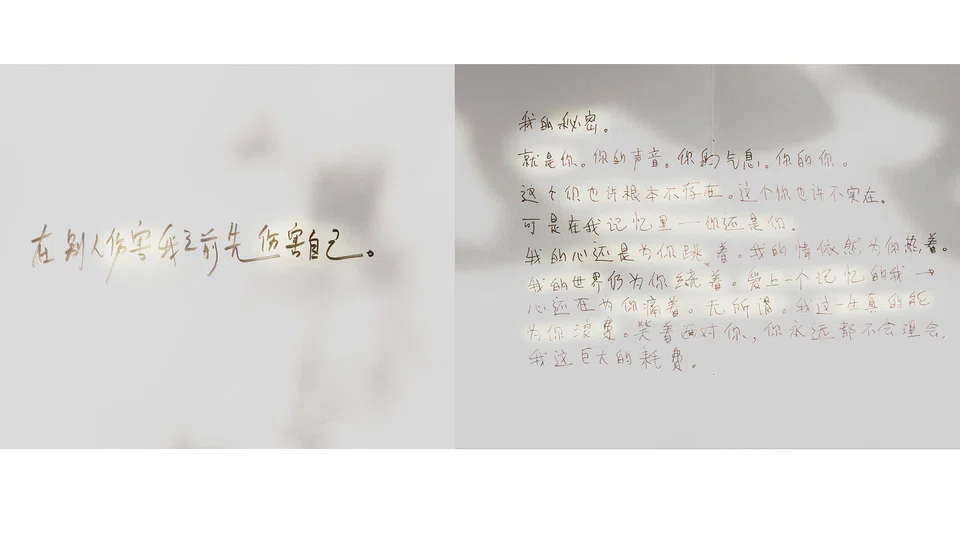 在别人伤害我之前先伤害自己。
我的秘密。
就是你。你的声音。你的气息。你的你。
这个你也许根本不存在。这个你也许不实在。
可是在我记忆里——你还是你。
我的心还是为你跳着。我的情依然为你热着。
我的世界仍为你绕着。爱上一个记忆的我→
心还在为你痛着。无所谓。我这一生真的能
为你浪费。笑着面对你,你永远都不会理会,
我这巨大的耗费。